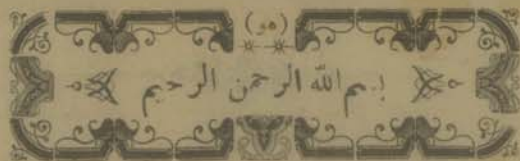 (هو)
بسم الله الرحمن الرحیم